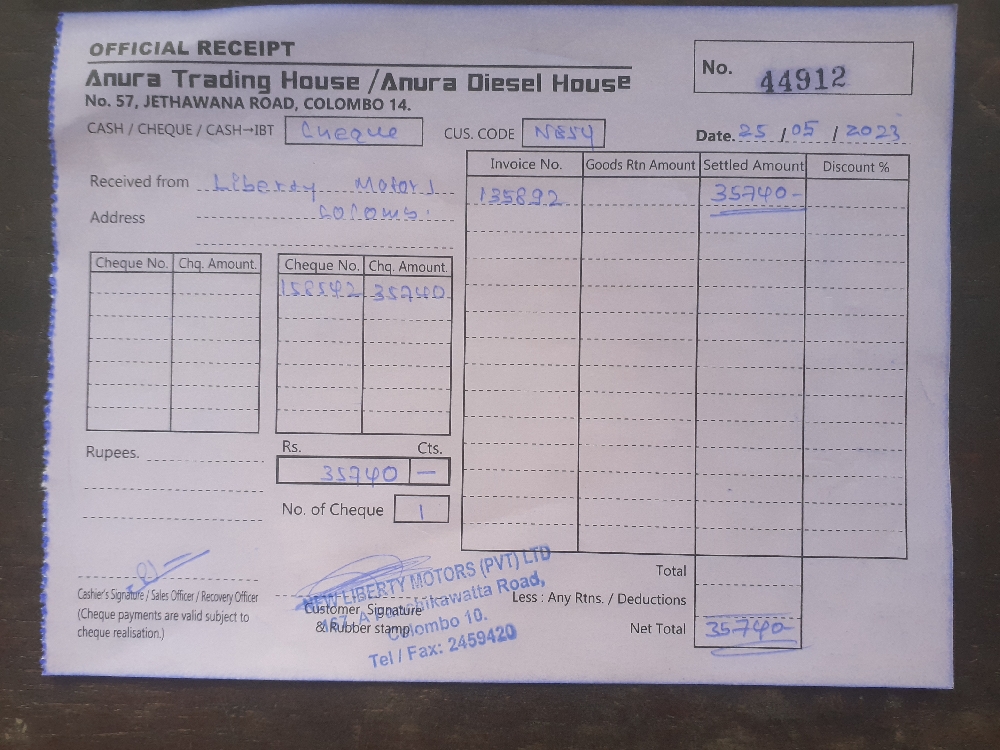 OFFICIAL RECEIPT
Anura Trading House / Anura Diesel House
No. 57, JETHAWANA ROAD, COLOMBO 14.
No. 44912
CASH / CHEQUE / CASH→IBT Cheque CUS. CODE N854 Date. 25 / 05 / 2023
Received from Liberty Motors
Address
Invoice No. Goods Rtn Amount Settled Amount Discount %
135892 35740-
Cheque No. Chq. Amount. Cheque No. Chq. Amount.
158542 35740
Rupees.
Rs. Cts.
35740 —
No. of Cheque 1
Cashier's Signature / Sales Officer / Recovery Officer
(Cheque payments are valid subject to
cheque realisation.)
Customer Signature
& Rubber stamp
NEW LIBERTY MOTORS (PVT) LTD
Panchikawatta Road,
Colombo 10.
Tel / Fax: 2459420
Total
Less : Any Rtns. / Deductions
Net Total 35740-